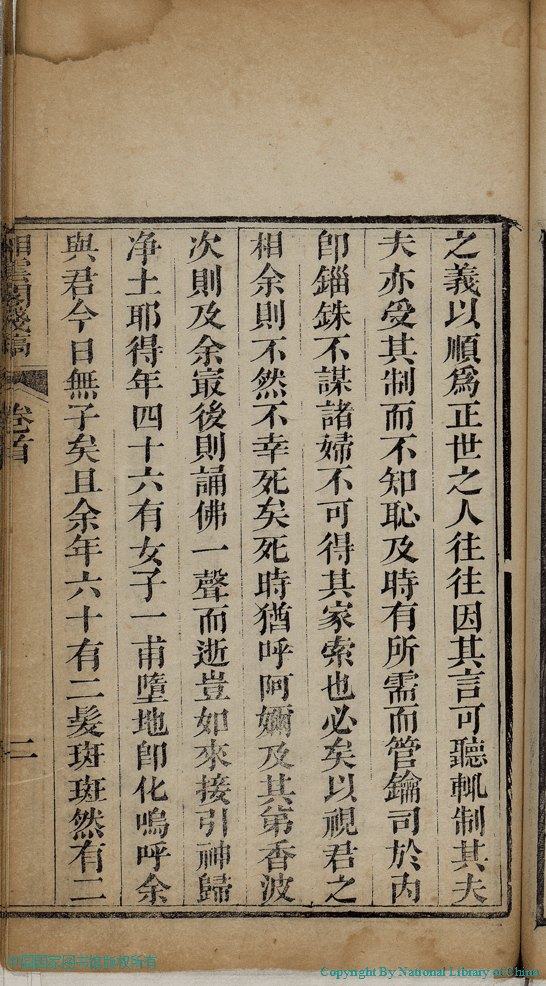 之義以順爲正世之人往往因其言可聽輒制其夫
夫亦受其制而不知恥及時有所需而管鑰司於內
卽錙銖不謀諸婦不可得其家索也必矣以視君之
相余則不然不幸死矣死時猶呼阿嬭及其第香波
次則及余最後則誦佛一聲而逝豈如來接引神歸
净土耶得年四十六有女子一甫墮地卽化嗚呼余
與君今日無子矣且余年六十有二髮斑斑然有二
卷首
二
中國國家圖書館版權所有
Copyright By National Library of China